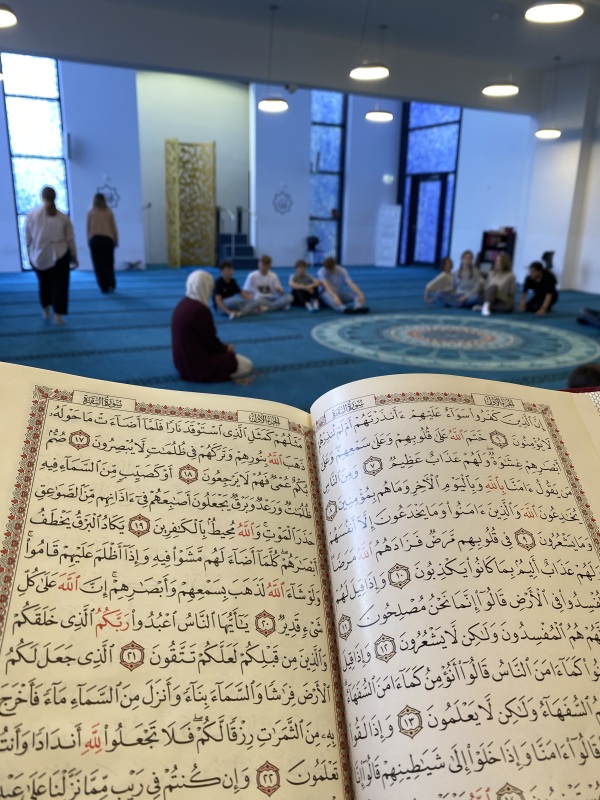 سُورَةُ البَقَرَةِ الجُزْءُ الأَوَّلُ
إِنَّ ٱلَّذِينَ كَفَرُوا۟ سَوَآءٌ عَلَيْهِمْ ءَأَنذَرْتَهُمْ أَمْ لَمْ تُنذِرْهُمْ
لَا يُؤْمِنُونَ ٦ خَتَمَ ٱللَّهُ عَلَىٰ قُلُوبِهِمْ وَعَلَىٰ سَمْعِهِمْ وَعَلَىٰٓ
أَبْصَٰرِهِمْ غِشَٰوَةٌ وَلَهُمْ عَذَابٌ عَظِيمٌ ٧ وَمِنَ ٱلنَّاسِ
مَن يَقُولُ ءَامَنَّا بِٱللَّهِ وَبِٱلْيَوْمِ ٱلْءَاخِرِ وَمَا هُم بِمُؤْمِنِينَ ٨
يُخَٰدِعُونَ ٱللَّهَ وَٱلَّذِينَ ءَامَنُوا۟ وَمَا يَخْدَعُونَ إِلَّآ أَنفُسَهُمْ
وَمَا يَشْعُرُونَ ٩ فِى قُلُوبِهِم مَّرَضٌ فَزَادَهُمُ ٱللَّهُ مَرَضًا
وَلَهُمْ عَذَابٌ أَلِيمٌۢ بِمَا كَانُوا۟ يَكْذِبُونَ ١٠ وَإِذَا قِيلَ لَهُمْ
تُفْسِدُوا۟ فِى ٱلْأَرْضِ قَالُوٓا۟ إِنَّمَا نَحْنُ مُصْلِحُونَ ١١
إِنَّهُمْ هُمُ ٱلْمُفْسِدُونَ وَلَٰكِن لَّا يَشْعُرُونَ ١٢ وَإِذَا قِيلَ
كَمَآ ءَامَنَ ٱلنَّاسُ قَالُوٓا۟ أَنُؤْمِنُ كَمَآ ءَامَنَ ٱلسُّفَهَآءُ
هُمُ ٱلسُّفَهَآءُ وَلَٰكِن لَّا يَعْلَمُونَ ١٣ وَإِذَا لَقُوا۟
قَالُوٓا۟ ءَامَنَّا وَإِذَا خَلَوْا۟ إِلَىٰ شَيَٰطِينِهِمْ قَالُوٓا۟ إِنَّا
سُورَةُ البَقَرَةِ الجُزْءُ الأَوَّلُ
مَثَلُهُمْ كَمَثَلِ ٱلَّذِى ٱسْتَوْقَدَ نَارًا فَلَمَّآ أَضَآءَتْ مَا حَوْلَهُۥ
ذَهَبَ ٱللَّهُ بِنُورِهِمْ وَتَرَكَهُمْ فِى ظُلُمَٰتٍ لَّا يُبْصِرُونَ ١٧ صُمٌّۢ
بُكْمٌ عُمْىٌ فَهُمْ لَا يَرْجِعُونَ ١٨ أَوْ كَصَيِّبٍ مِّنَ ٱلسَّمَآءِ فِيهِ
ظُلُمَٰتٌ وَرَعْدٌ وَبَرْقٌ يَجْعَلُونَ أَصَٰبِعَهُمْ فِىٓ ءَاذَانِهِم مِّنَ ٱلصَّوَٰعِقِ
حَذَرَ ٱلْمَوْتِ وَٱللَّهُ مُحِيطٌۢ بِٱلْكَٰفِرِينَ ١٩ يَكَادُ ٱلْبَرْقُ يَخْطَفُ
أَبْصَٰرَهُمْ كُلَّمَآ أَضَآءَ لَهُم مَّشَوْا۟ فِيهِ وَإِذَآ أَظْلَمَ عَلَيْهِمْ قَامُوا۟
وَلَوْ شَآءَ ٱللَّهُ لَذَهَبَ بِسَمْعِهِمْ وَأَبْصَٰرِهِمْ إِنَّ ٱللَّهَ عَلَىٰ كُلِّ
شَىْءٍ قَدِيرٌ ٢٠ يَٰٓأَيُّهَا ٱلنَّاسُ ٱعْبُدُوا۟ رَبَّكُمُ ٱلَّذِى خَلَقَكُمْ
وَٱلَّذِينَ مِن قَبْلِكُمْ لَعَلَّكُمْ تَتَّقُونَ ٢١ ٱلَّذِى جَعَلَ لَكُمُ
ٱلْأَرْضَ فِرَٰشًا وَٱلسَّمَآءَ بِنَآءً وَأَنزَلَ مِنَ ٱلسَّمَآءِ مَآءً فَأَخْرَجَ
بِهِۦ مِنَ ٱلثَّمَرَٰتِ رِزْقًا لَّكُمْ فَلَا تَجْعَلُوا۟ لِلَّهِ أَندَادًا وَأَنتُمْ
تَعْلَمُونَ ٢٢ وَإِن كُنتُمْ فِى رَيْبٍ مِّمَّا نَزَّلْنَا عَلَىٰ عَبْدِنَا